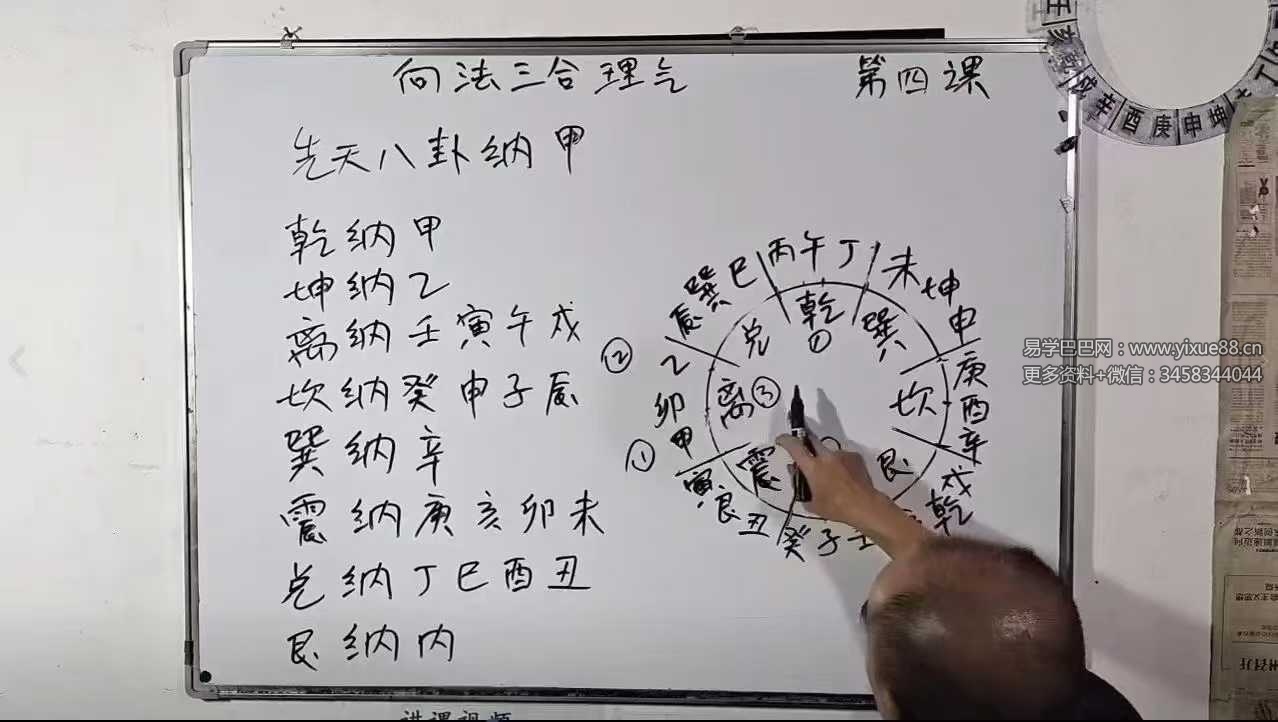 向法三合理气 第四课
先天八卦纳甲
乾纳甲
坤纳乙
离纳壬寅午戌
坎纳癸申子辰
巽纳辛
震纳庚亥卯未
兑纳丁巳酉丑
艮纳内
丙午丁
未坤申
庚酉辛
戌乾
壬子癸
丑艮寅
甲卯乙
辰巽巳
① ②
乾①
兑
巽
离③
坎
震
艮
辛酉庚申坤
易学巴巴网：www.yixue88.cn
更多资料+微信：3458344044
讲课视频